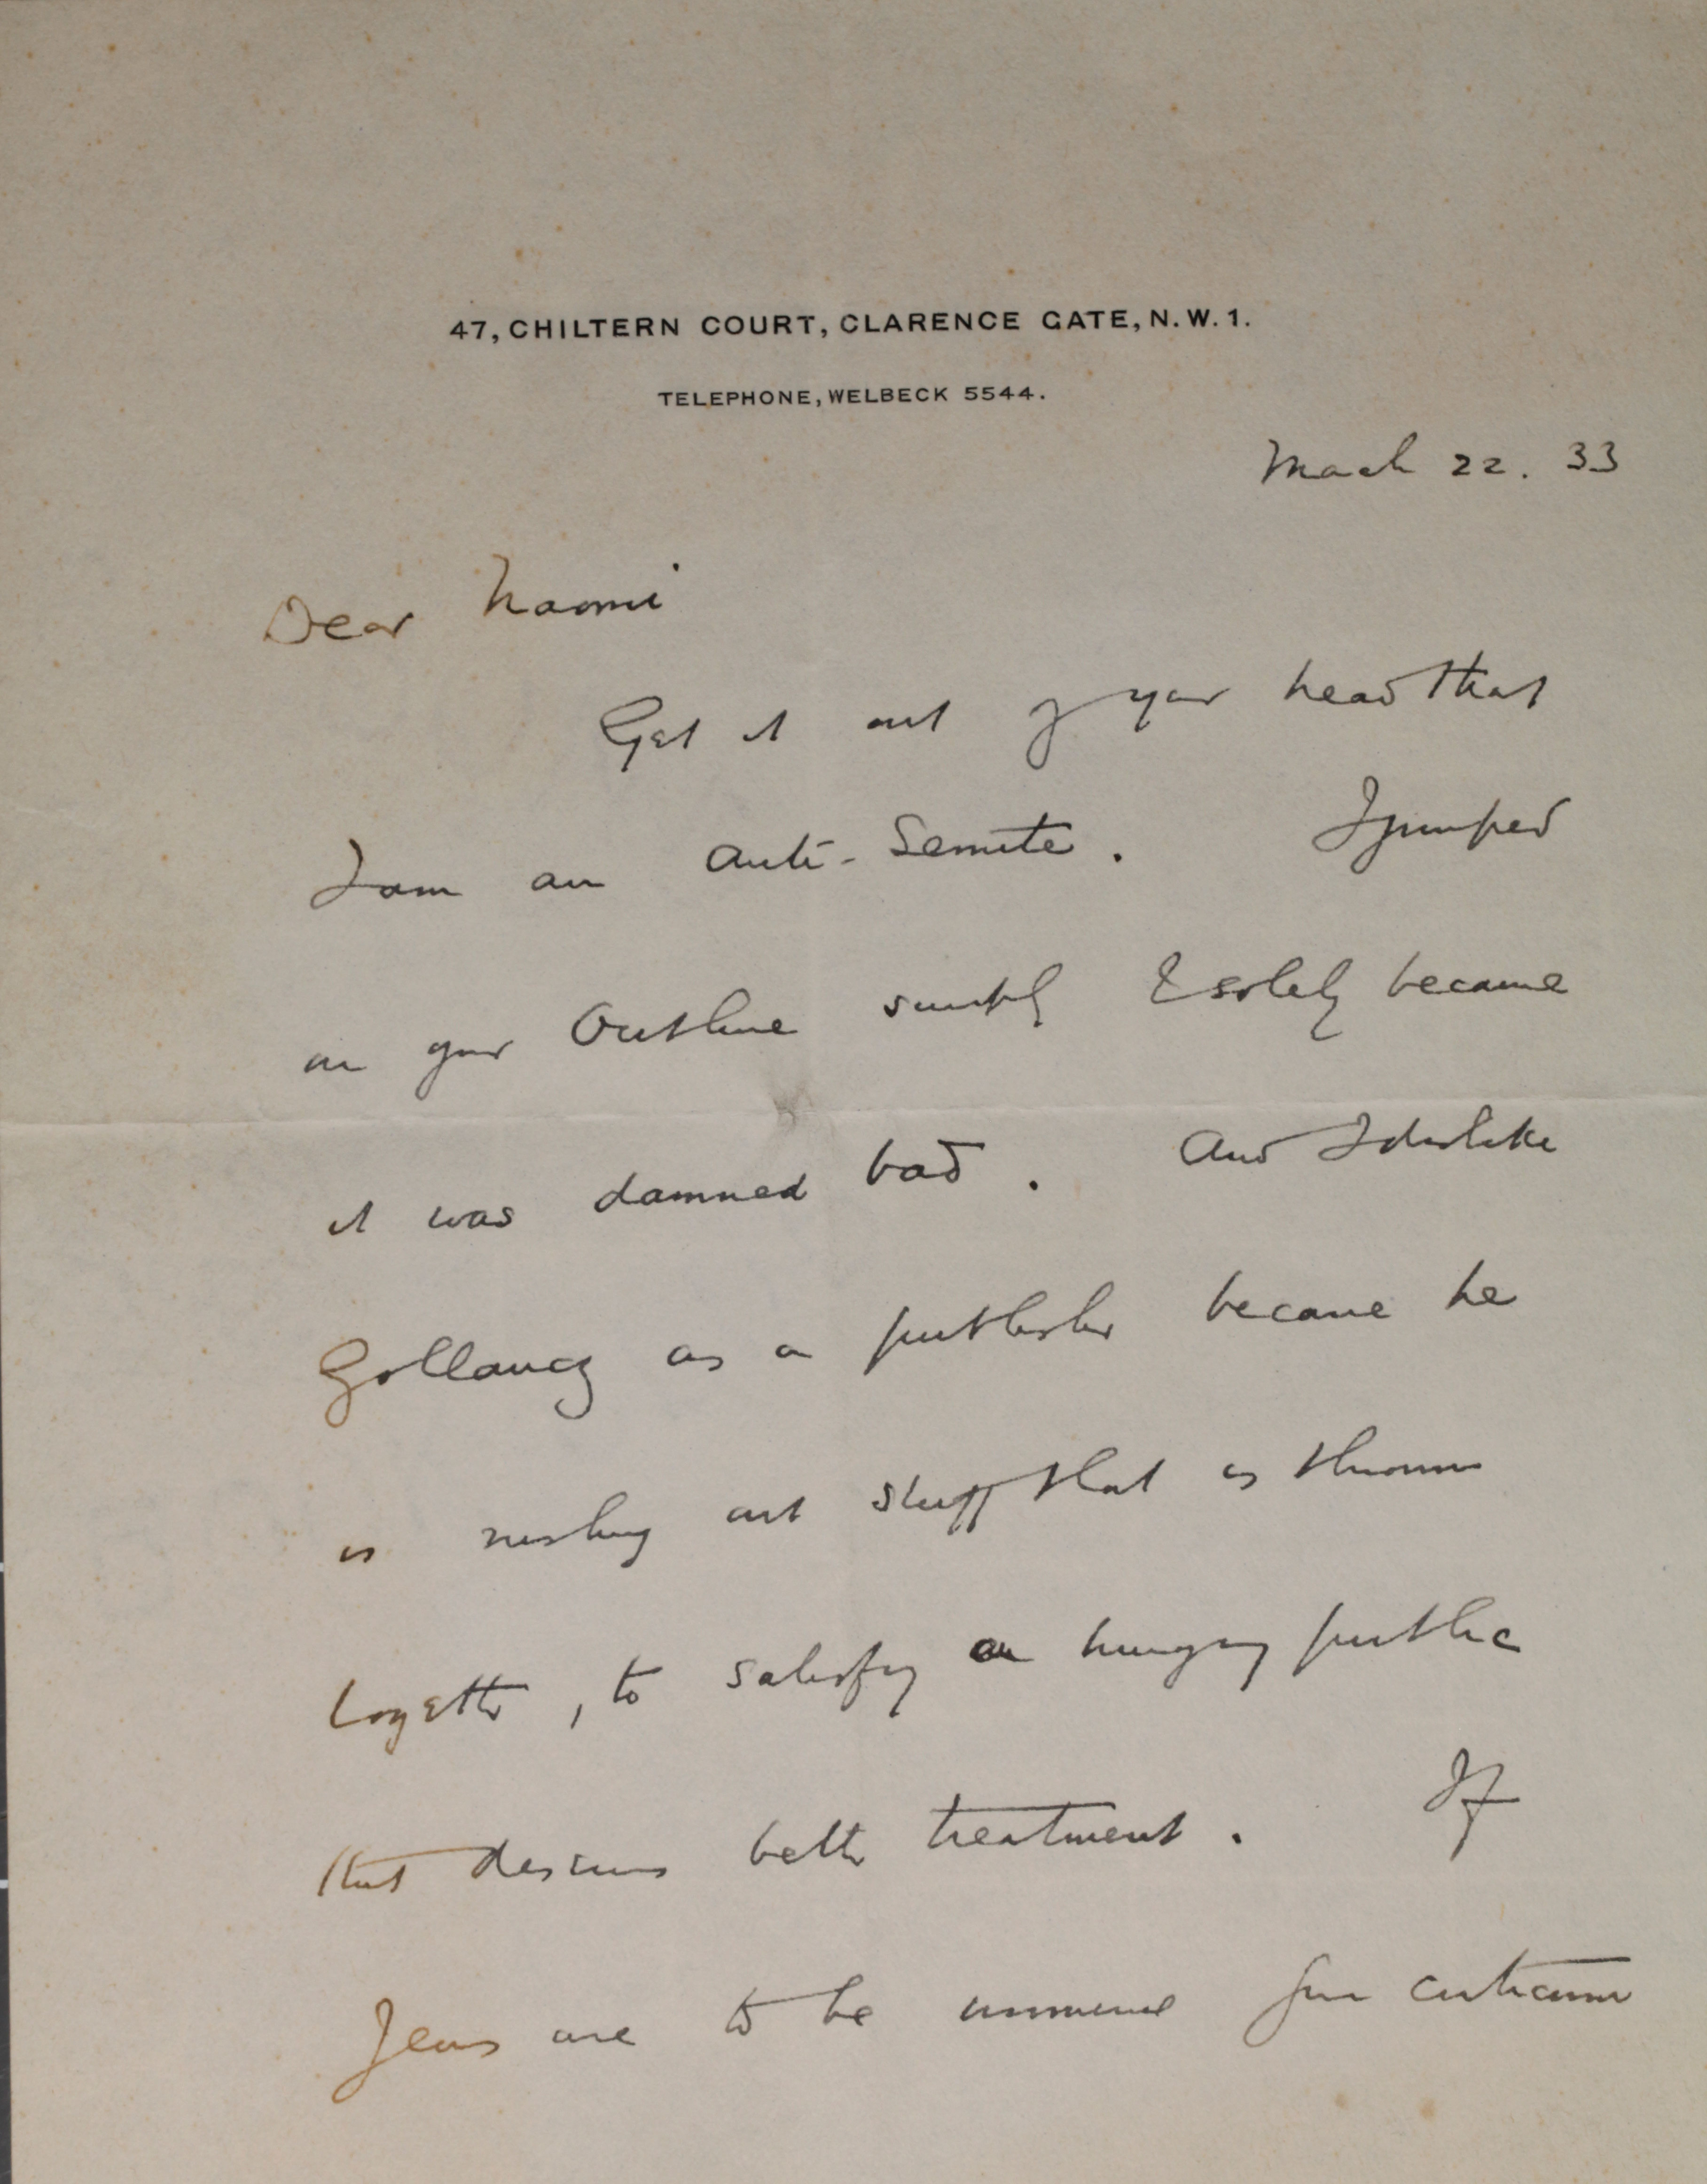 47, CHILTERN COURT, CLARENCE GATE, N.W.1.
TELEPHONE, WELBECK 5544.
March 22. 33
Dear Naomi
Get it out of your head that
I am an anti-Semite. I jumped
on your Outline simply & solely because
it was damned bad. And I dislike
Gollancz as a publisher because he
is rushing out stuff that is thrown
together, to satisfy a hungry public
that deserves better treatment. If
Jews are to be immune from criticism